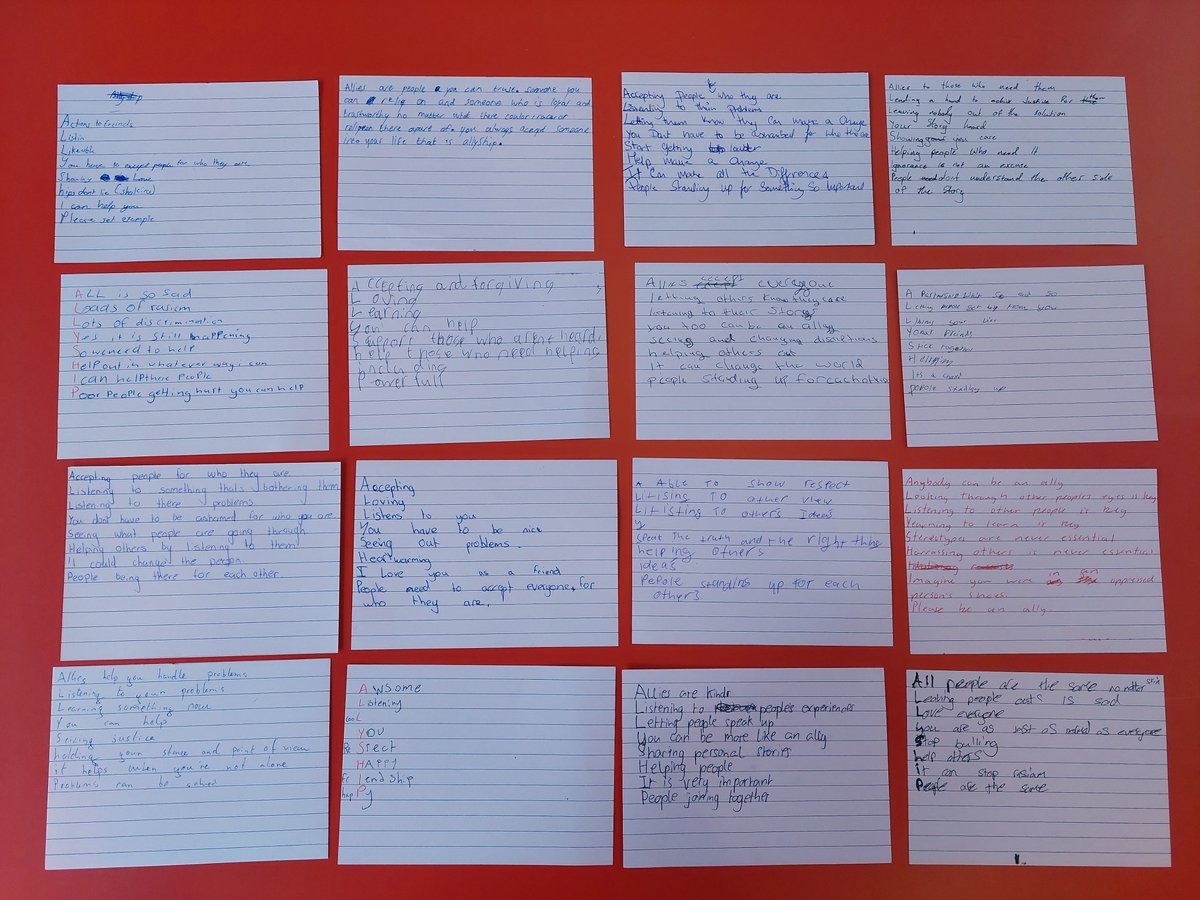 Actions to friends
Listin
Likeable
You have to accept people for who they are
Show love
hips don't lie (shakira)
I can help you
Please set example
Allies are people you can trust. someone you
can relie on and someone who is loyal and
trustworthy no matter what there coulor, race or
religeon there apart of. you always accept someone
into your life that is allyship.
Accepting people who they are
Listenlin to their problems
Letting them know they can make a change
You Dont have to be ashamed for who
Start getting louder
Help make a change
It Can make all the Differences
People Standing up for Something So important
Allies to those who need them
Lending a hand to achive Justice for
Leaving nobody out of the solution
Your Story heard
Showing you care
Helping people who need it
Ignorance is not an excuse
People dont understand the other side
of the story
ALL is so sad
Loads of rasism
Lots of discrimination
Yes it is still happening
So we need to help
Help out in whatever way i can
I can help there people
Poor people getting hurt you can help
Accepting and forgiving
Loving
Learning
You can help
Support those who arent heard
help those who need helping
including
powerfull
Allies accept everyone
letting others know they care
listening to their storys
you too can be an ally
seeing and changing
helping others
It can change the world
people standing up for eachother
A Partnership
Liking your
Your friends
Stick together
Helping
Its a
people standing up
Accepting people for who they are
Listening to something thats bothering them
Listening to there problems
You dont have to be ashamed for who you are
Seeing what people are going through
Helping others by listening to them
it could change the person
People being there for each other
Accepting
Loving
Listens to you
You have to be nice
Seeing out problems.
Heartwarming
I Love you as a friend
People need to accept everyone, for
who they are.
A Able TO show respect
Litising TO other view
LiTisTing TO others Ideers
y
speat The truth and the right thing
helping others
ideas
PePole standing up for each
others.
Anybody can be an ally
Looking through other people's eyes is key
Listening to other people is key
Yearning to learn is key
Stereotypes are never essential
Harrassing others is never essential
Imagine you were in an oppressed
person's shoes.
Please be an ally.
Allies help you handle problems
Listening to your problems
Learning something new
You can help
Seicing justice
holding your stance and point of view
it helps when you're not alone
Problems can be solved
Awsome
Listening
cooL
You
ReSpect
HAPPY
frIendship
hapPy
Allies are kind
Listening to peoples experiences
Letting people speak up
You can be more like an ally
Sharing personal stories
Helping people
It is very important
People joining together
All people are the same no matter
Leaving people out IS sad
Love everyone
you are as everyone
Stop bulling
help others
it can stop
People are the same